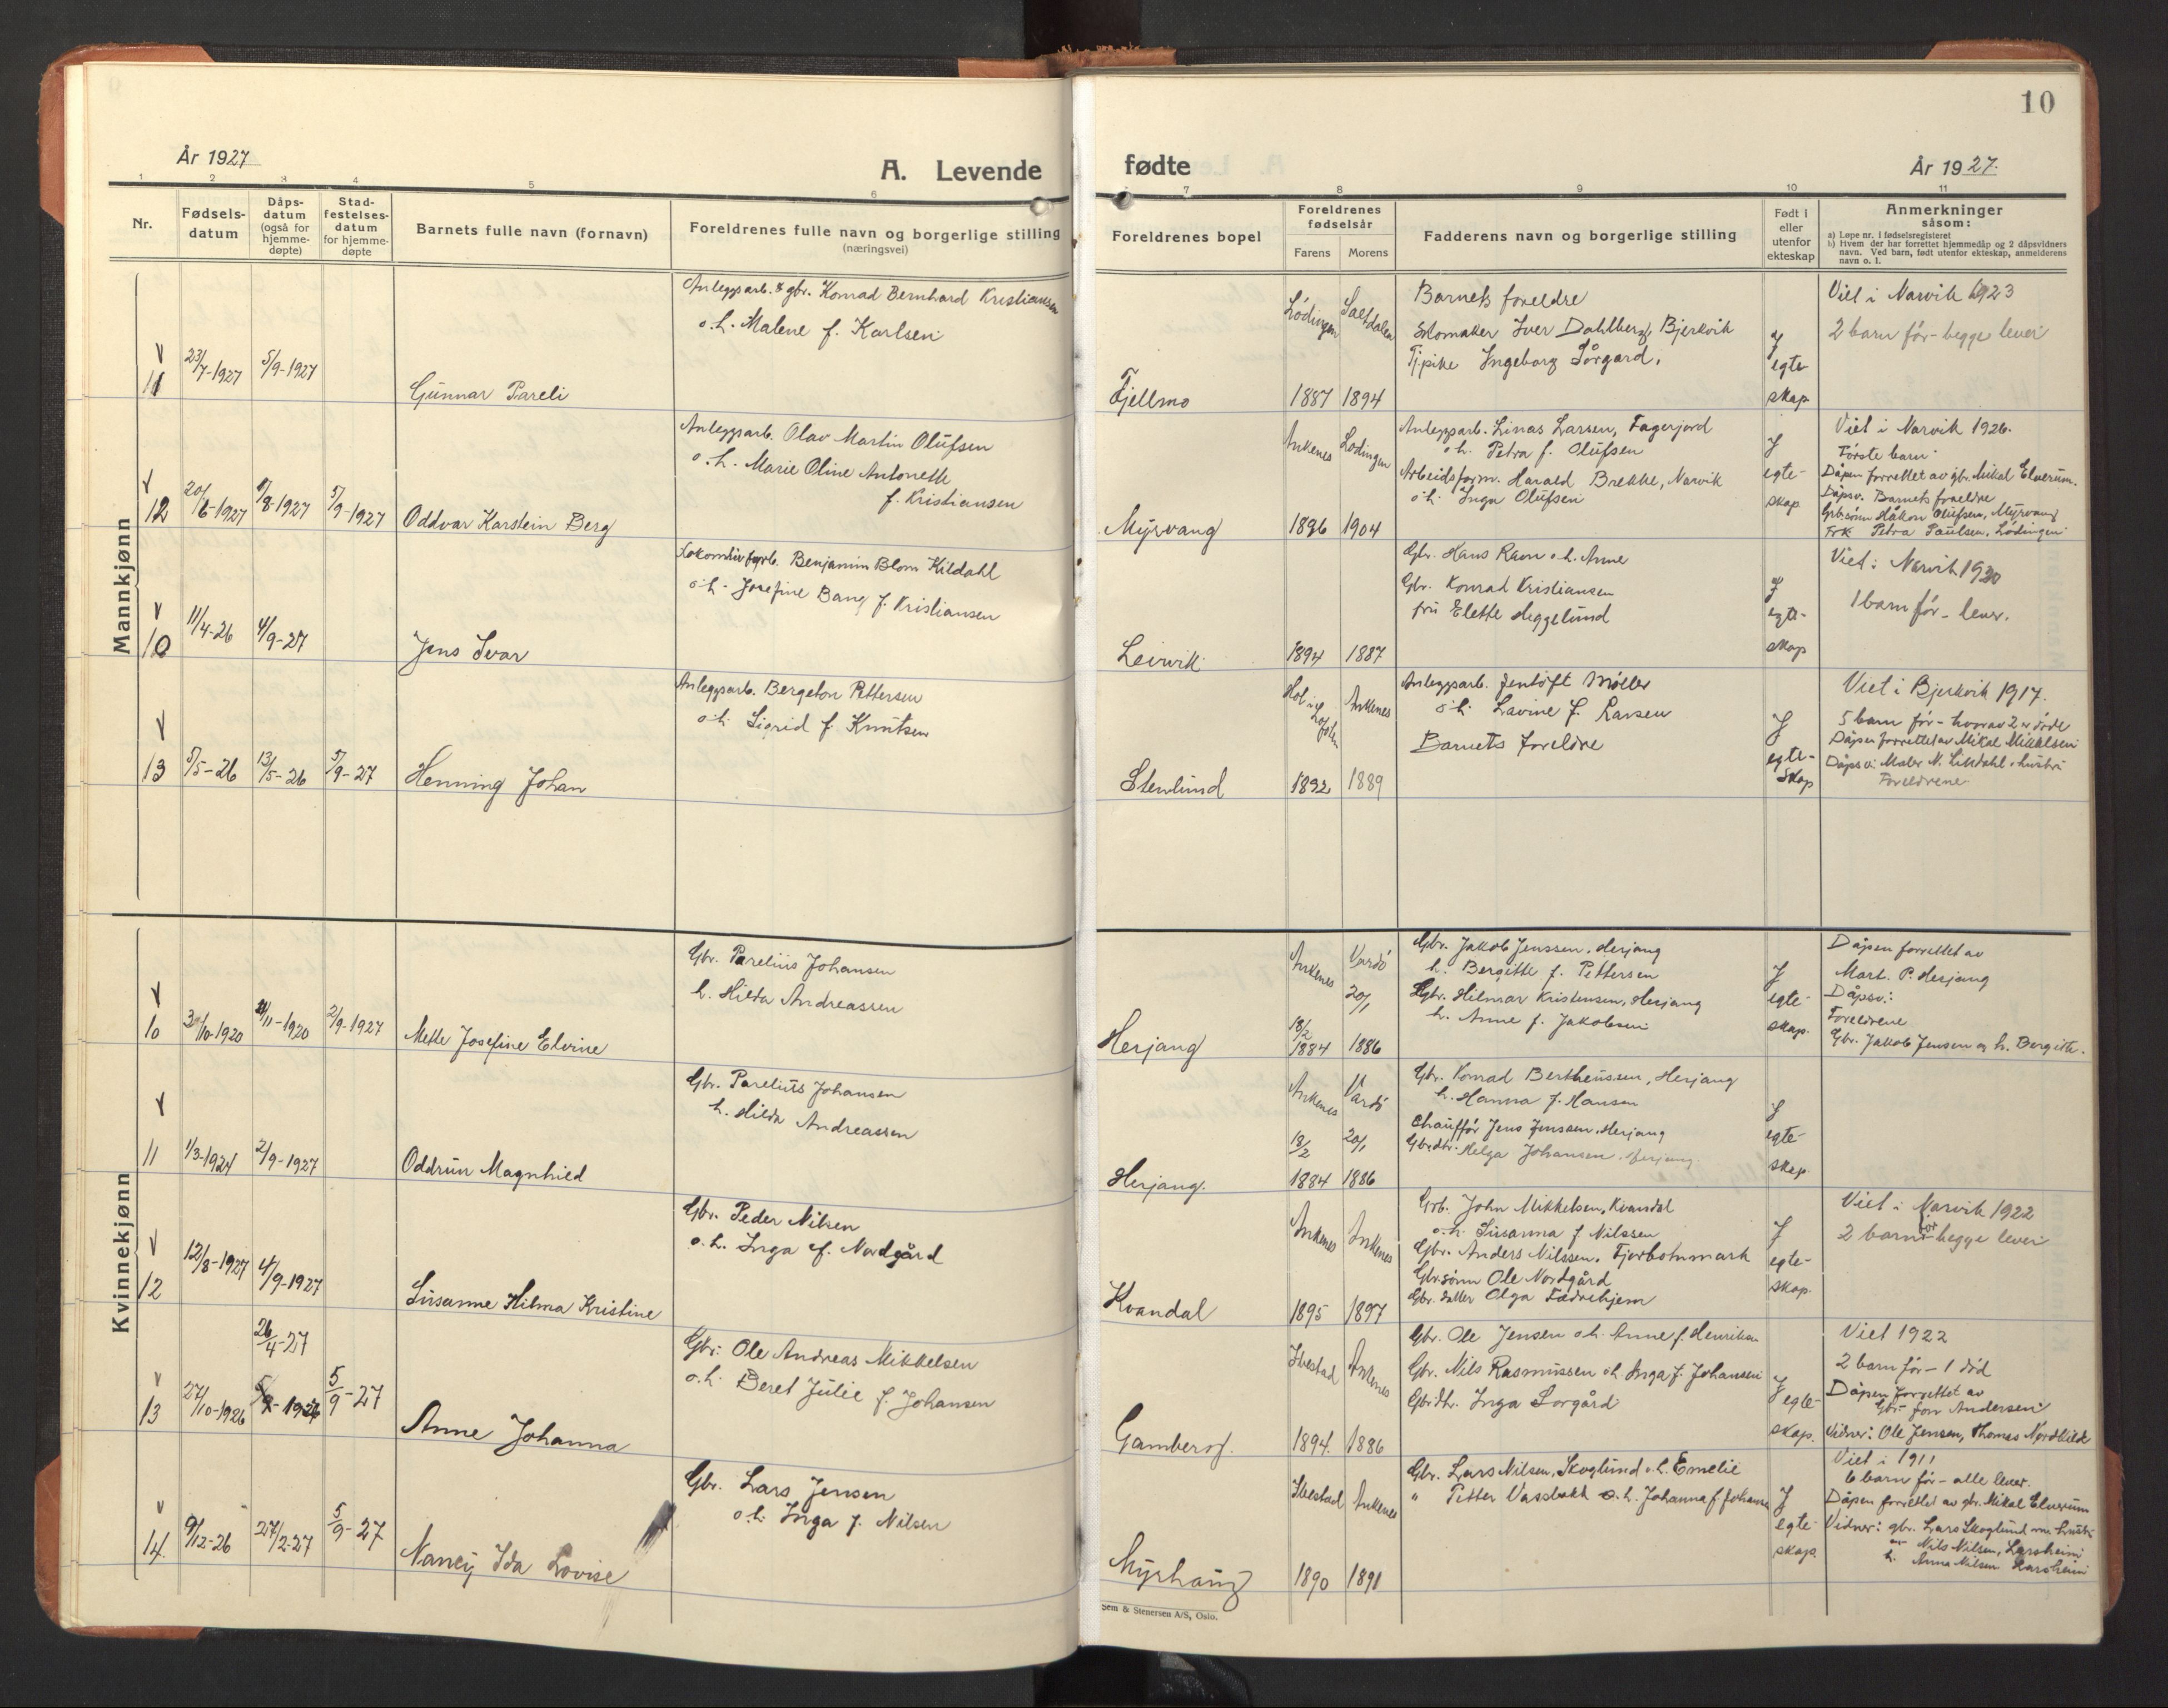 10
År 1927
A. Levende
fødte
År 1927.
1 2 3 4 5 6 7 8 9 10 11
Nr.
Fødsels-
datum
Dåps-
datum
(også for
hjemme-
døpte)
Stad-
festelses-
datum
for hjemme-
døpte
Barnets fulle navn (fornavn)
Foreldrenes fulle navn og borgerlige stilling
(næringsvei)
Foreldrenes bopel
Foreldrenes
fødselsår
Farens Morens
Fadderens navn og borgerlige stilling
Født i
eller
utenfor
ekteskap
Anmerkninger
såsom:
a) Løpe nr. i fødselsregisteret
b) Hvem der har forrettet hjemmedåp og 2 dåpsvidners
navn. Ved barn, født utenfor ekteskap, anmelderens
navn o. l.
Mannkjønn
v
11
23/7-1927
5/9-1927
Gunnar Pareli
Anleggsarb. & gbr. Konrad Bernhard Kristiansen
o.h. Malene f. Karlsen
Fjellmo
Lødingen
1887
Saltdalen
1894
Barnets foreldre
Skomaker Iver Dahlberg, Bjerkvik
Tj.pike Ingeborg Sørgard.
I
egte-
skap
Viet i Narvik 1923
2 barn før - begge lever
v
12
20/6-1927
/8-1927
5/9-1927
Oddvar Karstein Berg
Anleggsarb. Olav Martin Olufsen
o.h. Marie Oline Antonette
f. Kristiansen
Myrvang
Ankenes
1896
Lødingen
1904
Anleggsarb. Linas Larsen, Fagerjord
o.h. Petra f. Olufsen
Arbeidsform. Harald Brekke, Narvik
o.h. Inga Olufsen
I
egte-
skap
Viet i Narvik 1926.
Første barn
Dåpen forrettet av gbr. Mikal Elverum.
Dåpsv. Barnets foreldre
Gbr.sønn Håkon Olufsen, Myrvang
Frk Petra Paulsen, Lødingen
v
10
11/4-26
4/9-27
Jens Ivar
Benjamin Blom Kildahl
o.h. Josefine Bang f. Kristiansen
Leirvik
1894
1887
Gbr. Hans Ravn o.h. Anne
Gbr. Konrad Kristiansen
fru Elette Heggelund
I
egte-
skap
Viet i Narvik 1920
1 barn før - lever.
v
13
5/5-26
13/5-26
5/9-27
Henning Johan
Anleggsarb. Bergeton Pettersen
o.h. Sigrid f. Knutsen
Stenlund
Hol i Lofoten
1892
Ankenes
1889
Anleggsarb. Jentoft Møller
o.h. Lavine f. Larsen
Barnets foreldre
I
egte-
skap
Viet i Bjerkvik 1917.
5 barn før - hvorav 2 er døde
Dåpen forrettet av Mikal Mikkelsen
Dåpsv: Maler N. Lildahl o. hustru
Foreldrene
Kvinnekjønn
v
10
/10-1920
/11-1920
2/9-1927
Mette Josefine Elvine
Gbr. Parelius Johansen
h. Hilda Andreassen
Herjang
Ankenes
18/2
1884
Vardø
20/1
1886
Gbr. Jakob Jenssen, Herjang
h. Bergitte f. Pettersen
Gbr. Hilmar Kristensen, Herjang
h. Anne f. Jakobsen
I
egte-
skap.
Dåpen forrettet av
Mart. P. Herjang
Dåpsv.:
Foreldrene
Gbr. Jakob Jensen og h. Bergitte.
v
11
1/3-1924
2/9-1927
Oddrun Magnhild
Gbr. Parelius Johansen
h. Hilda Andreassen
Herjang.
Ankenes
18/2
1884
Vardø
20/1
1886
Gbr. Konrad Bertheussen, Herjang
h. Hanna f. Hansen
Chauffør Jens Jenssen, Herjang
Gbrdtr. Helga Johansen, Herjang
I
egte-
skap.
v
12
12/8-1927
4/9-1927
Susanne Hilma Kristine
Gbr. Peder Nilsen
o.h. Inga f. Nordgård
Kvandal
Ankenes
1895
Ankenes
1897
Grb. John Mikkelsen, Kvandal
o.h. Susanna f Nilssen
Gbr. Anders Nilssen, Fjorbotnmark
Gbr.sønn Ole Nordgård
Gbr. datter Olga Fædrehjem
I
egte-
skap.
Viet i Narvik 1922
2 barn før - begge lever
v
13
27/10-1926
26/4-27
5/9-27
Anne Johanna
Gbr. Ole Andreas Mikkelsen
o.h. Beret Julie f. Johansen
Gambersg.
Ibestad
1894.
Ankenes
1886
Gbr. Ole Jensen o.h. Anne f. Henriksen
Gbr. Nils Rasmussen o.h. Inga f. Johansen
Gbrdtr. Inga Sorgård
I
egte-
skap.
Viet 1922
2 barn før - 1 død
Dåpen forrettet av
Gbr. Jon Andersen
Vidner: Ole Jensen, Thomas Nordkilde
v
14.
9/12-26
27/2-27
5/9-27
Nancy Ida Lovise
Gbr. Lars Jensen
o.h. Inga f. Nilsen
Myrhaug
Ibestad
1890
Ankenes
1891
Gbr. Lars Nilsen, Skoglund o.h. Emelie
" Petter Vassbakk o.h. Johanna f. Johansen
I
egte-
skap.
Viet i 1911
6 barn før - alle lever.
Dåpen forrettet av gbr. Mikal Elverum
Vidner: gbr. Lars Skoglund m. hustru
Nils Nilsen, Larsheim
h. Anna Nilsen Larsheim
Sem & Stenersen A/S, Oslo.